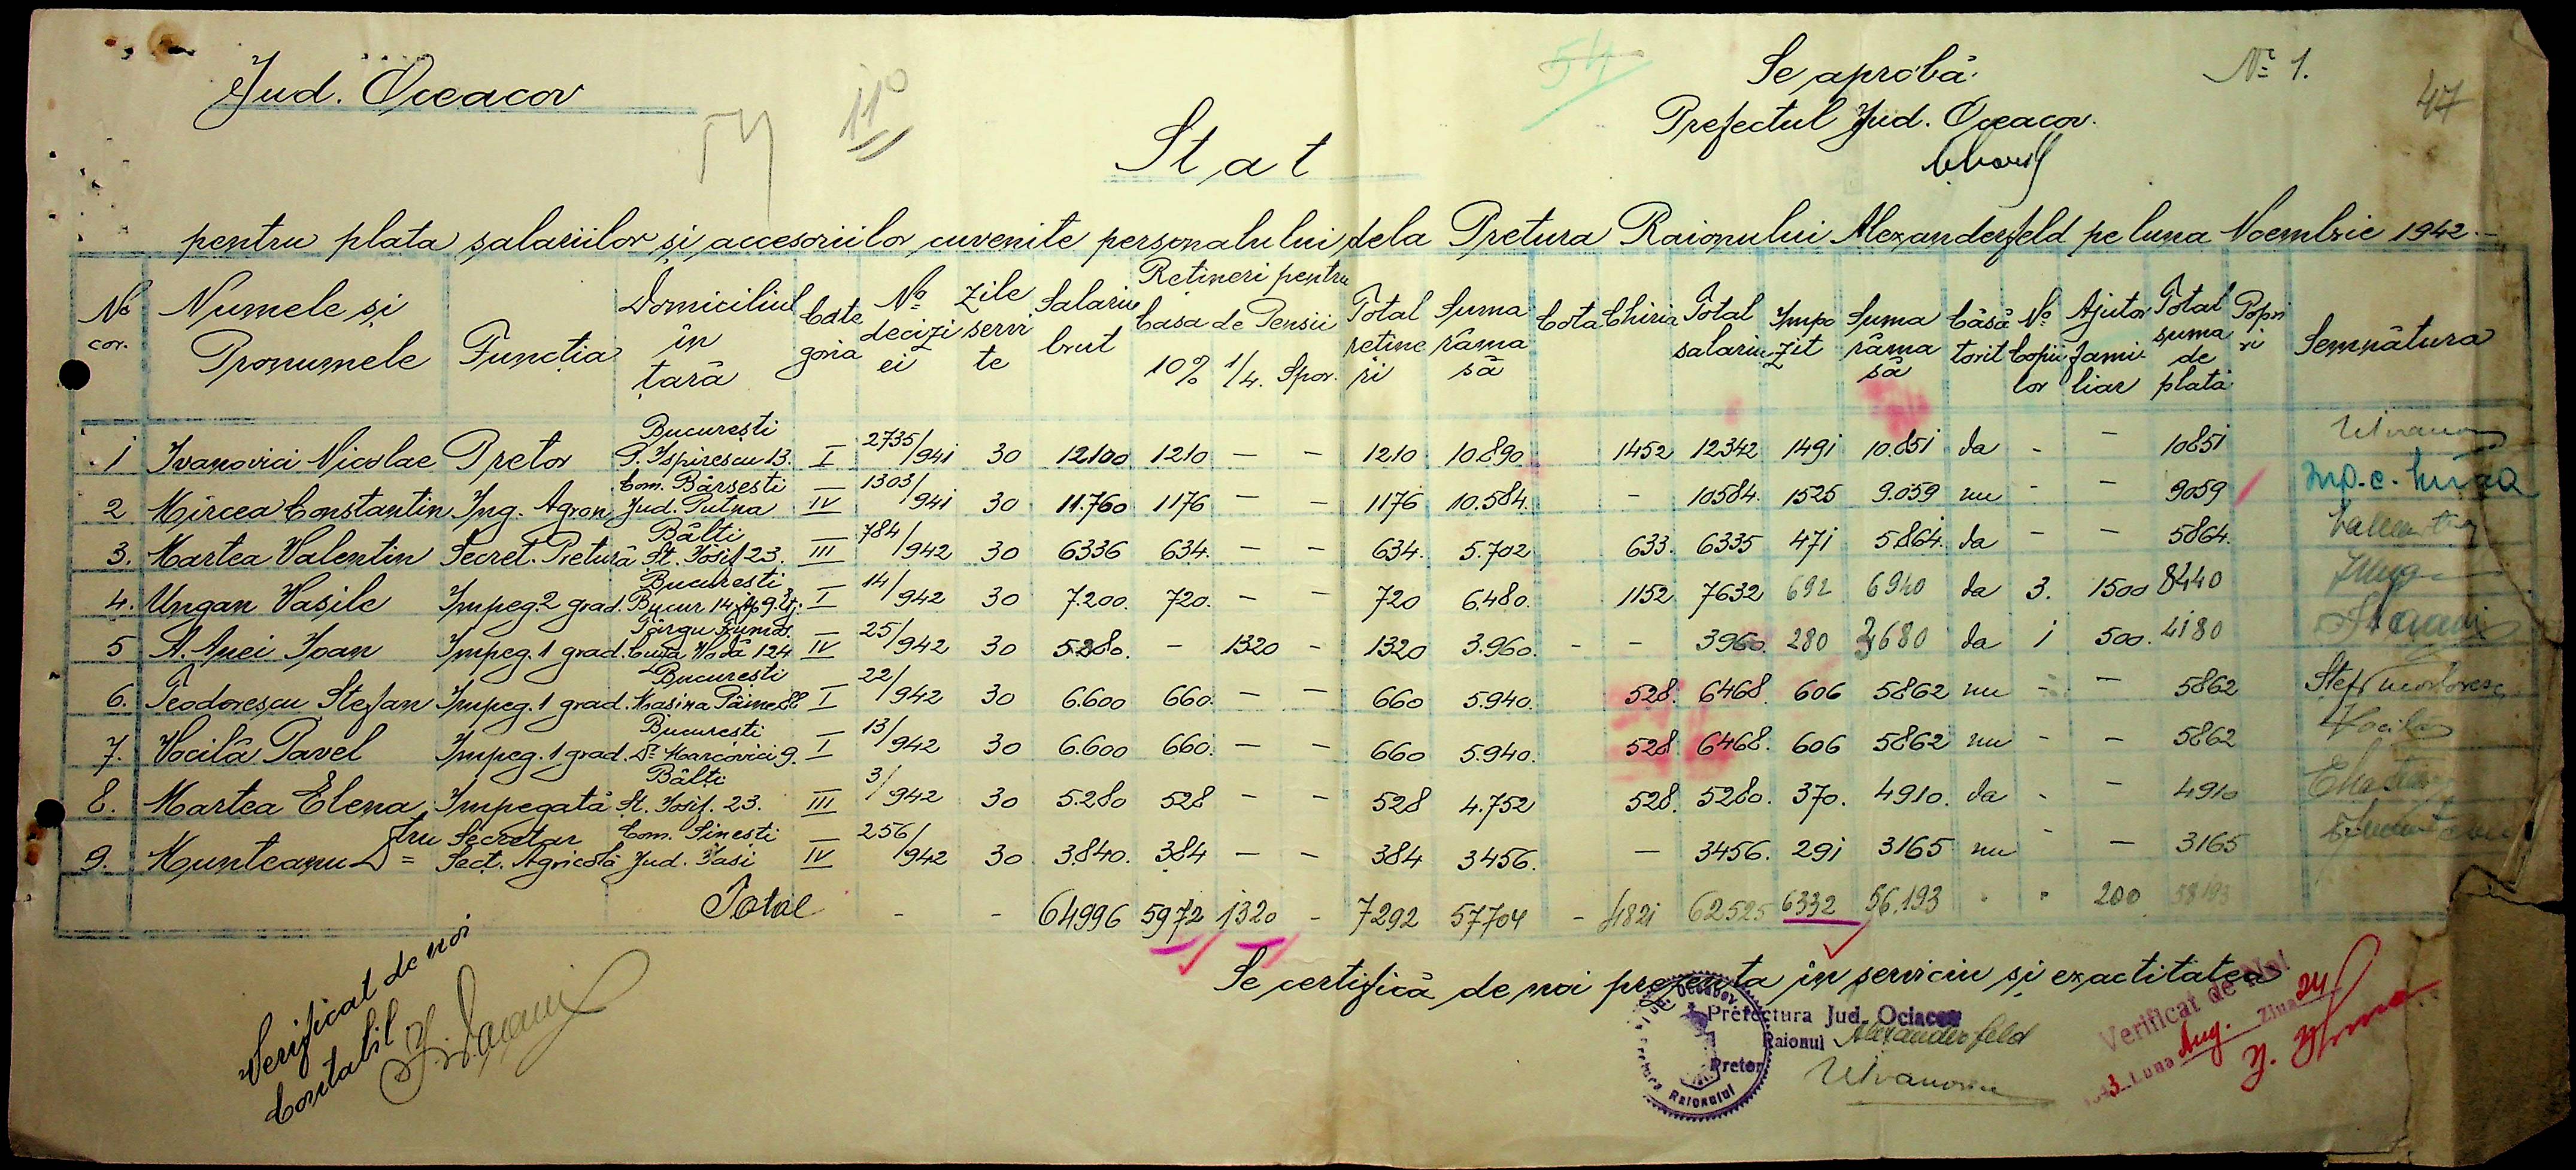 Jud. Oceacov
54
110
54
Se aprobă
Prefectul Jud. Oceacov.
Nº 1.
47
Stat
pentru plata salariilor și accesoriilor cuvenite personalului dela Pretura Raionului Alexanderfeld pe luna Noembrie 1942.-
No cor. Numele și Pronumele Funcția Domiciliul în țară Categoria No deciziei Zile servite Salariu brut Retineri pentru Casa de Pensii 10% 1/4. Spor. Total retineri Suma rămasă Cota Chiria Total salariu Impozit Suma rămasă Căsătorit No Copiilor Ajutor familiar Total suma de plată Popriri Semnătura
1 Ivanovici Nicolae Pretor București P. Ispirescu 13. I 2735/941 30 12100 1210 — — 1210 10.890 1452 12342 1491 10.851 da - — 10851
2 Mircea Constantin Ing. Agron Com. Bârsesti Jud. Putna IV 1303/941 30 11.760 1176 — — 1176 10.584 - 10584. 1525 9.059 nu - — 9059
3. Martea Valentin Secret. Pretură Bălti St. Iosif 23. III 784/942 30 6336 634. — — 634. 5.702 633. 6335 471 5.864. da - — 5864.
4. Ungan Vasile Impeg. 2 grad. București Bucur 14 I 14/942 30 7.200. 720. — — 720 6.480. 1152 7632 692 6940 da 3. 1500 8440
5 A. Anei Ioan Impeg. 1 grad. Târgu Frumos. Cuza Vodă 124 IV 25/942 30 5.280. - 1320 - 1320 3.960. - - 3960. 280 3680 da 1 500. 4180
6. Teodorescu Stefan Impeg. 1 grad. București Masina Pâinei 88 I 22/942 30 6.600 660. — — 660 5.940. 528. 6468. 606 5862 nu - — 5862
7. Vocilă Pavel Impeg. 1 grad. București Dr. Marcovici 9. I 13/942 30 6.600 660. — — 660 5.940. 528 6468. 606 5862 nu - — 5862
8. Martea Elena Impegată Bălti St. Iosif. 23. III 3/942 30 5.280 528 — — 528 4.752 528. 5280. 370. 4910. da - — 4910
9. Munteanu D=tru Secretar Sect. Agricolă Com. Sinești Jud. Iasi IV 256/942 30 3.840. 384 — — 384 3456. — 3456. 291 3165 nu - — 3165
Total - - 64996 5972 1320 - 7292 57704 - 4821 62525 6332 56.193 200 58193
Se certifică de noi prezența în serviciu și exactitatea
Verificat de noi
Contabil
Prefectura Jud. Ociacov
Raionul Alexanderfeld
Pretor
Verificat de Noi
43 Luna Aug. Ziua 24